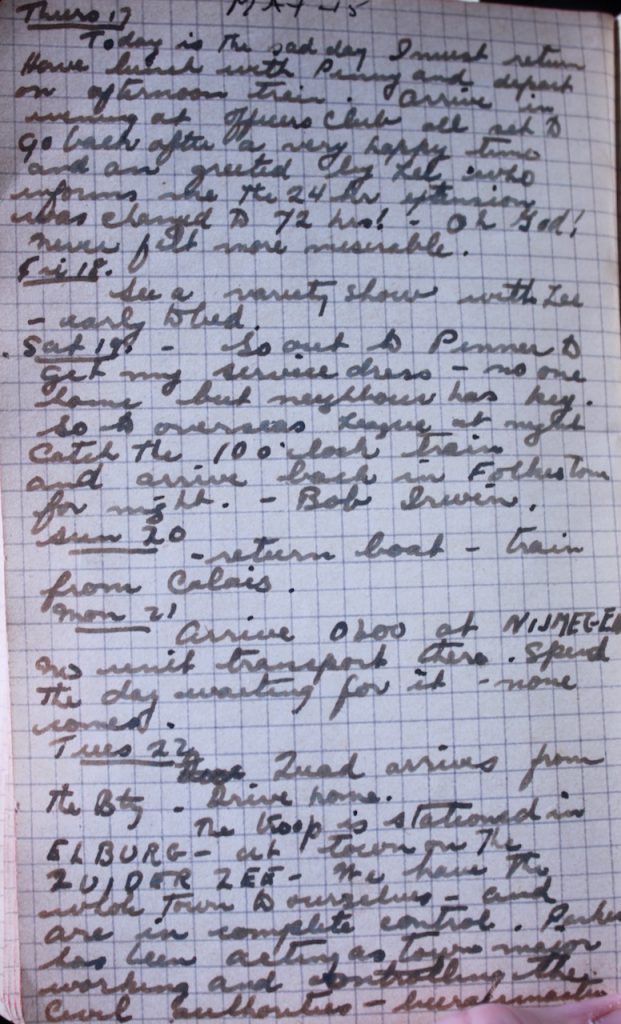 MAY -15
Thurs 17
Today is the sad day I must return
Have lunch with Penny and depart
on afternoon train. Arrive in
evening at Officers Club all set to
go back after a very happy time
and am greeted by Lee who
informs me the 24 hr extension
was changed to 72 hrs! - Oh God!
Never felt more miserable.
Fri 18.
See a variety show with Lee
- early to bed.
Sat 19. - Go out to Pinner to
get my service dress - no one
home but neighbour has key.
Go to overseas League at night
Catch the 10 o'clock train
and arrive back in Folkestone
for night. - Bob Irwin.
Sun 20
- return boat - train
from Calais.
Mon 21
Arrive 0600 at NIJMEGEN
no unit transport there. Spend
the day waiting for it - none
comes.
Tues 22
Quad arrives from
the Bty - Drive home.
The troop is stationed in
ELBURG - at town on the
ZUIDER ZEE - We have the
whole town to ourselves - and
are in complete control.
has been acting as town major
working and controlling the
Civil authorities -